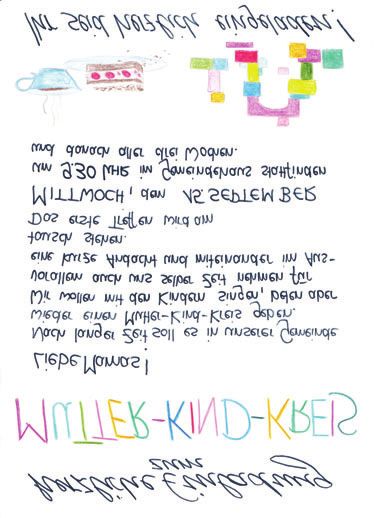 Herzliche Einladung
zum
MUTTER-KIND-KREIS
Liebe Mamas!
Nach langer Zeit soll es in unserer Gemeinde
wieder einen Mutter-Kind-Kreis geben.
Wir wollen mit den Kindern singen, beten aber
vorallem auch uns selber Zeit nehmen für
eine kurze Andacht und miteinander im Aus-
tausch stehen.
Das erste Treffen wird am
MITTWOCH, den 15. SEPTEMBER
um 9.30 UHR im Gemeindehaus stattfinden
und danach aller drei Wochen.
Ihr seid herzlich eingeladen!